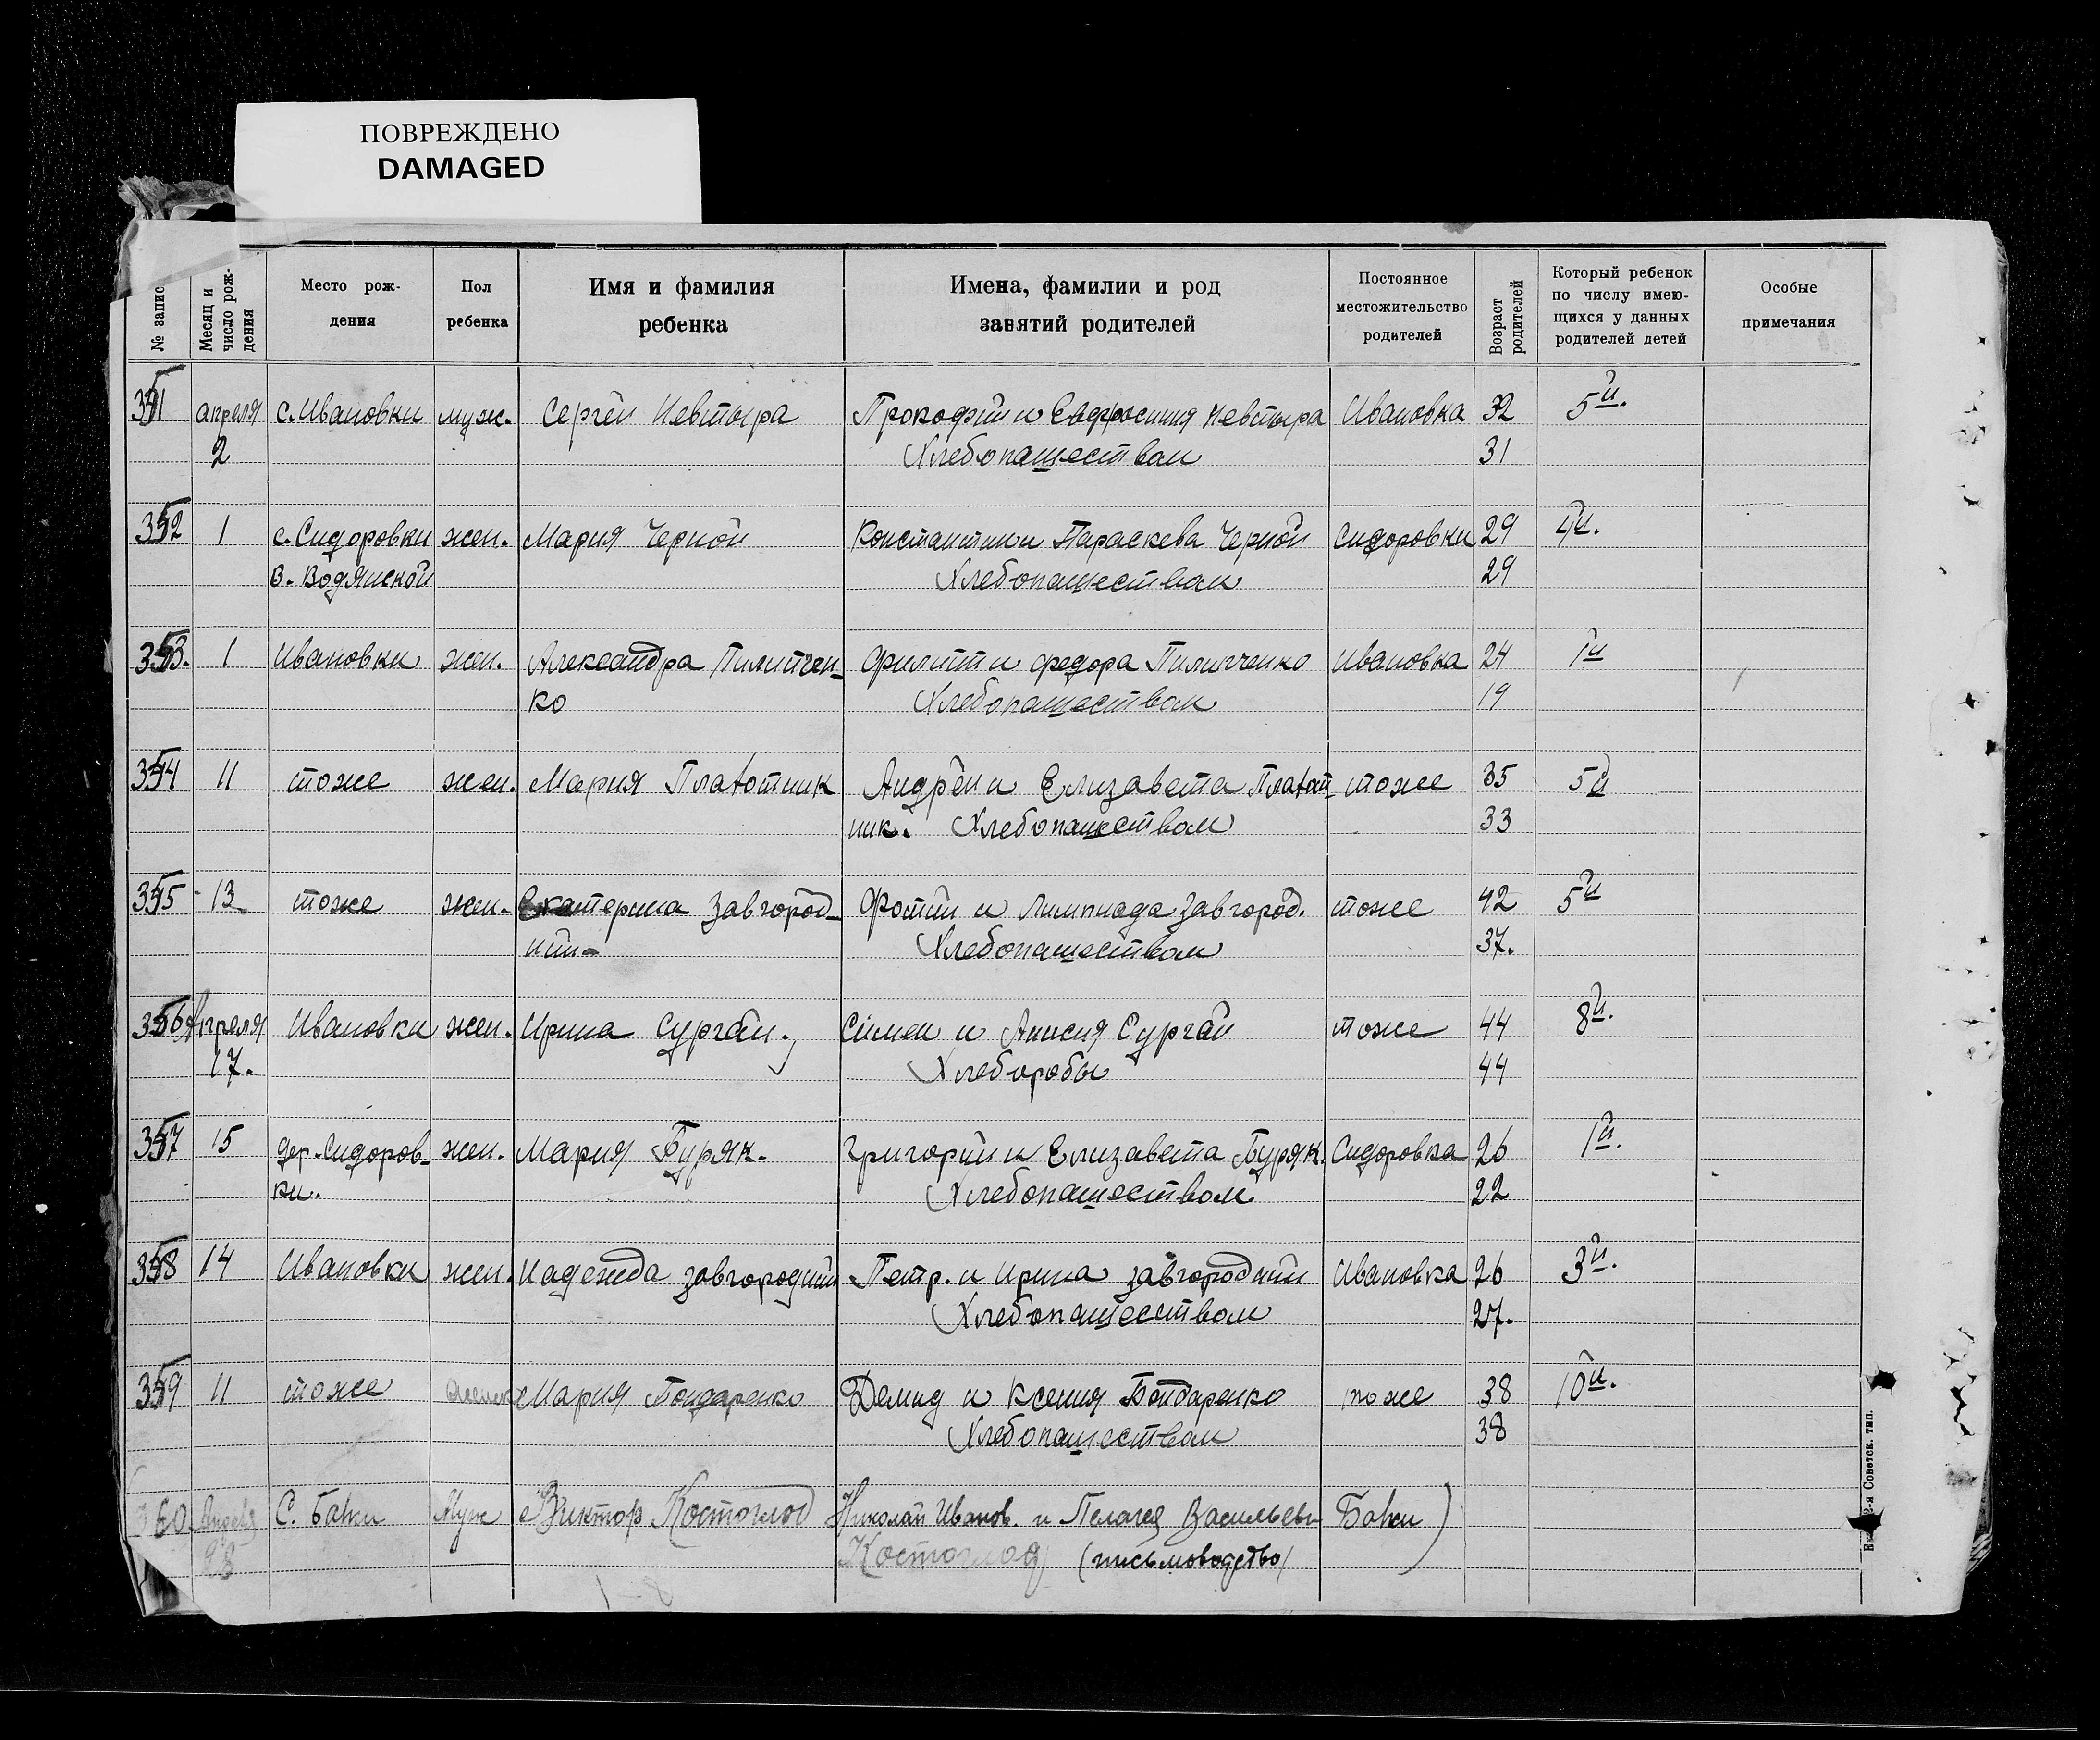 ПОВРЕЖДЕНО
DAMAGED
№ запис
Месяц и число рождения
Место рождения
Пол ребенка
Имя и фамилия ребенка
Имена, фамилии и род занятий родителей
Постоянное местожительство родителей
Возраст родителей
Который ребенок по числу имеющихся у данных родителей детей
Особые примечания
351 апреля с. Ивановки муж. Сергей Невтыра Прокофій и Евфросиния Невтыра Ивановка 32 5й.
2 Хлебопашеством 31
352 1 с. Сидоровки жен. Мария Черной Константин и Параскева Черной Сидоровки 29 4й.
В. Водянской Хлебопашеством 29
353. 1 Ивановки жен. Александра Пилипчен- Филипп и Федора Пилипченко Ивановка 24 1й
ко Хлебопашеством 19
354 11 тоже жен. Мария Платотник Андрей и Елизавета Платот- тоже 35 5й
ник. Хлебопашеством 33
355 13 тоже жен. Екатерина Завгород- Фотий и Лимпиада Завгород. тоже 42 5й
ний- Хлебопашеством 37.
356 Апреля Ивановки жен. Ирина Сургай. Симеи и Анисия Сургай тоже 44 8й.
17. Хлеборобы 44
357 15 дер. Сидоров- жен. Мария Буряк. Григорий и Елизавета Буряк. Сидоровка 26 1й.
ки. Хлебопашеством 22
358 14 Ивановки жен. Надежда Завгородний Петр. и Ирина Завгородний Ивановка 26 3й.
Хлебопашеством 27.
359 11 тоже Мария Бондаренко Демид и Ксения Бондаренко тоже 38 10й.
Хлебопашеством 38
360 Апреля С. Баки Муж Виктор Костоглод Николай Иванов. и Пелагея Васильевн Баки
28 Костоглод (письмоводство)
2-я Советск. тип.